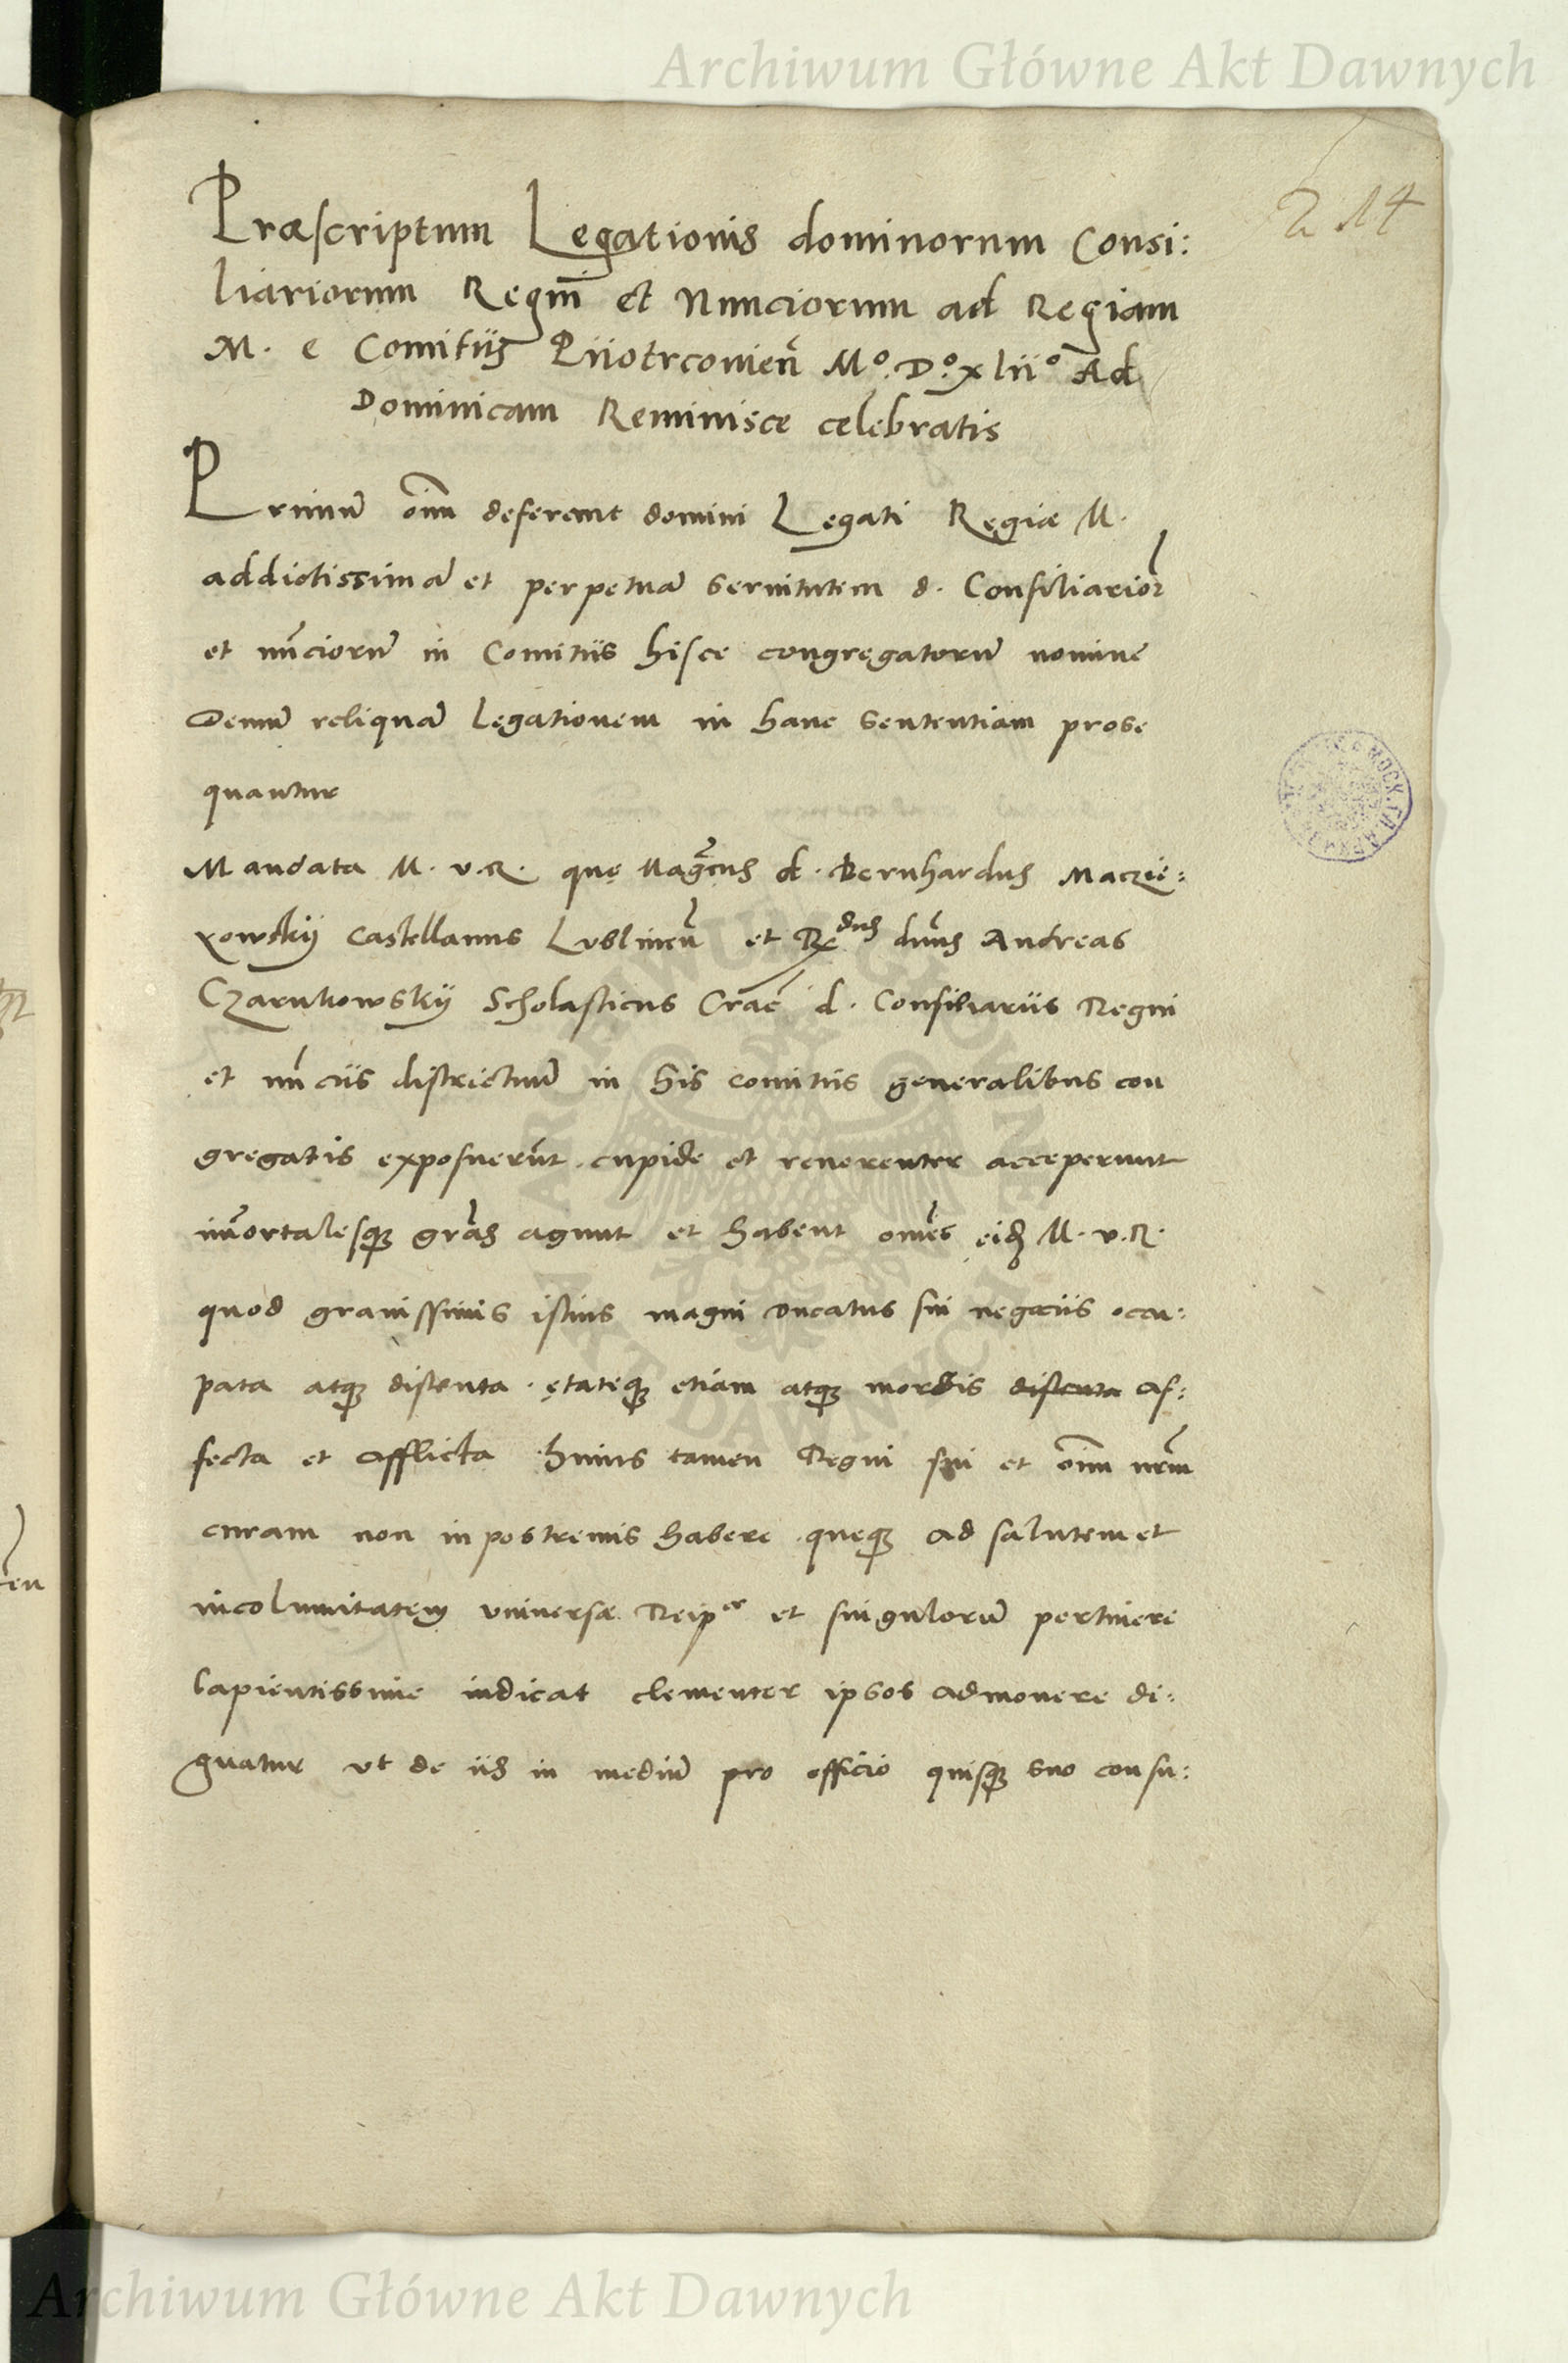 Archiwum Główne Akt Dawnych
2 14
Præscriptum Legationis dominorum Consi:
liariorum Regni et Nunciorum ad Regiam
M. e Comitiis Piiotrcovieñ Mº. Dº. xliiº Ad
Dominicam Reminisce celebratis
Primũ oĩm deferant domini Legati Regiæ M.
addictissimã et perpetuã servitutem d. Consiliarioꝝ
et nũciorũ in Comitiis hisce congregatorũ nomine
Demũ reliquã legationem in hanc sententiam prose
quantur
Mandata M. v. R. quę Mag̃cus d. Bernhardus Maczie:
yowskij Castellanus Lublineñ et R͠edus dñus Andreas
Czarnkowskij Scholasticus Crac̃ d. Consiliariis Regni
et nũciis districtuũ in his comitiis generalibus con
gregatis exposuerũt cupide et reverenter acceperunt
im̃ortalesqꝫ grãs agunt et habent omẽs eidꝫ M. v. R.
quod gravissimis istius magni ducatus sui negociis occu:
pata atqꝫ distenta. ętateqꝫ etiam atqꝫ morbis distenta af:
fecta et afflicta huius tamen Regni sui et oĩm nr̃m
curam non in postremis habere queqꝫ ad salutem et
incolumitatem universæ Reipce et singulorũ pertinere
sapientissime iudicat clementer ipsos admonere di:
gnatur ut de iis in mediũ pro officio quisqꝫ suo consu:
Archiwum Główne Akt Dawnych